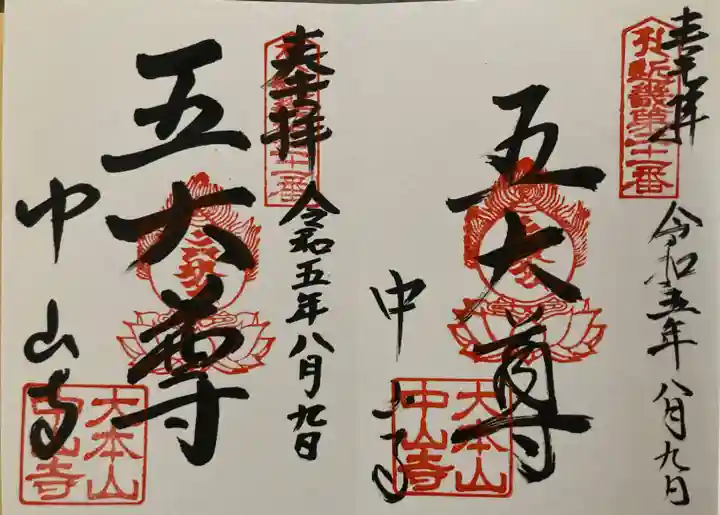 奉拝
令和五年八月九日
五大尊
中山寺
大本山
中山寺
奉拝
令和五年八月九日
五大尊
中山寺
大本山
中山寺